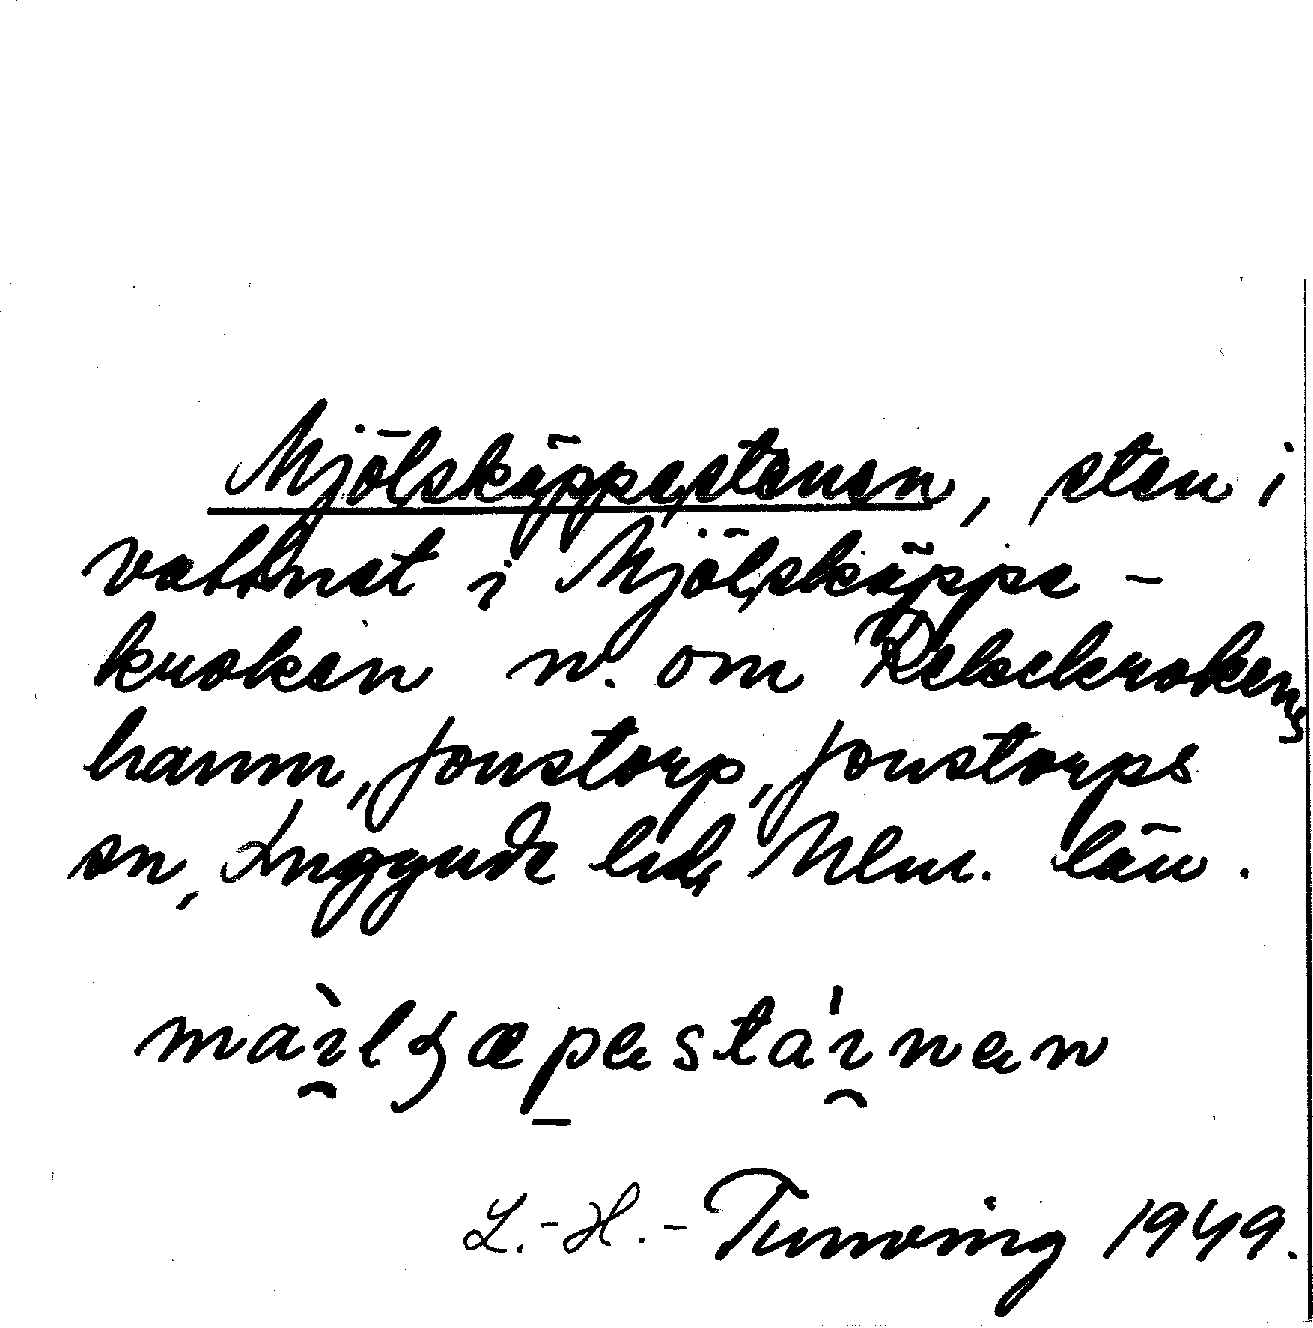 Mjölskäppestenen, sten i
vattnet i Mjölskäppe-
kroken n. om Rekekrokens
hamn, Jonstorp, Jonstorps
sn, Luggude hd, Mlm. län.
mai̯lʒæpastai̯nan
L.-H.- Tunving 1949.